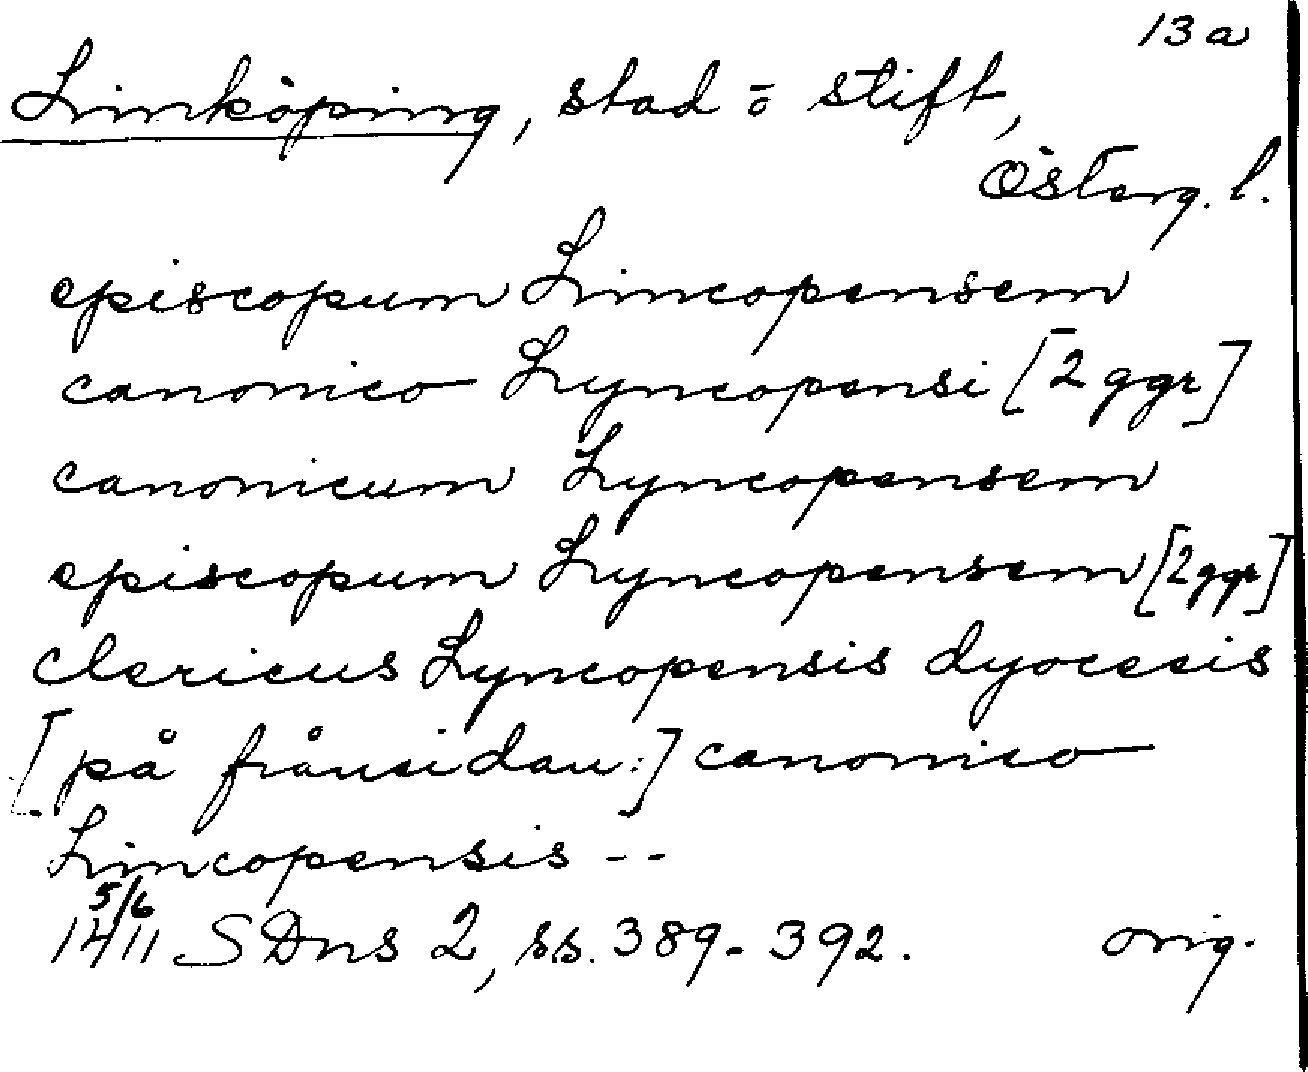 13a
Linköping, stad o stift,
Österg. l.
episcopum Lincopensem
canonico Lyncopensi [2 ggr]
canonicum Lyncopensem
episcopum Lyncopensem [2 ggr]
clericus Lyncopensis dyocesis
[på frånsidan:] canonico
Lincopensis --
5/6
1411 SDns 2, ss. 389-392. orig.